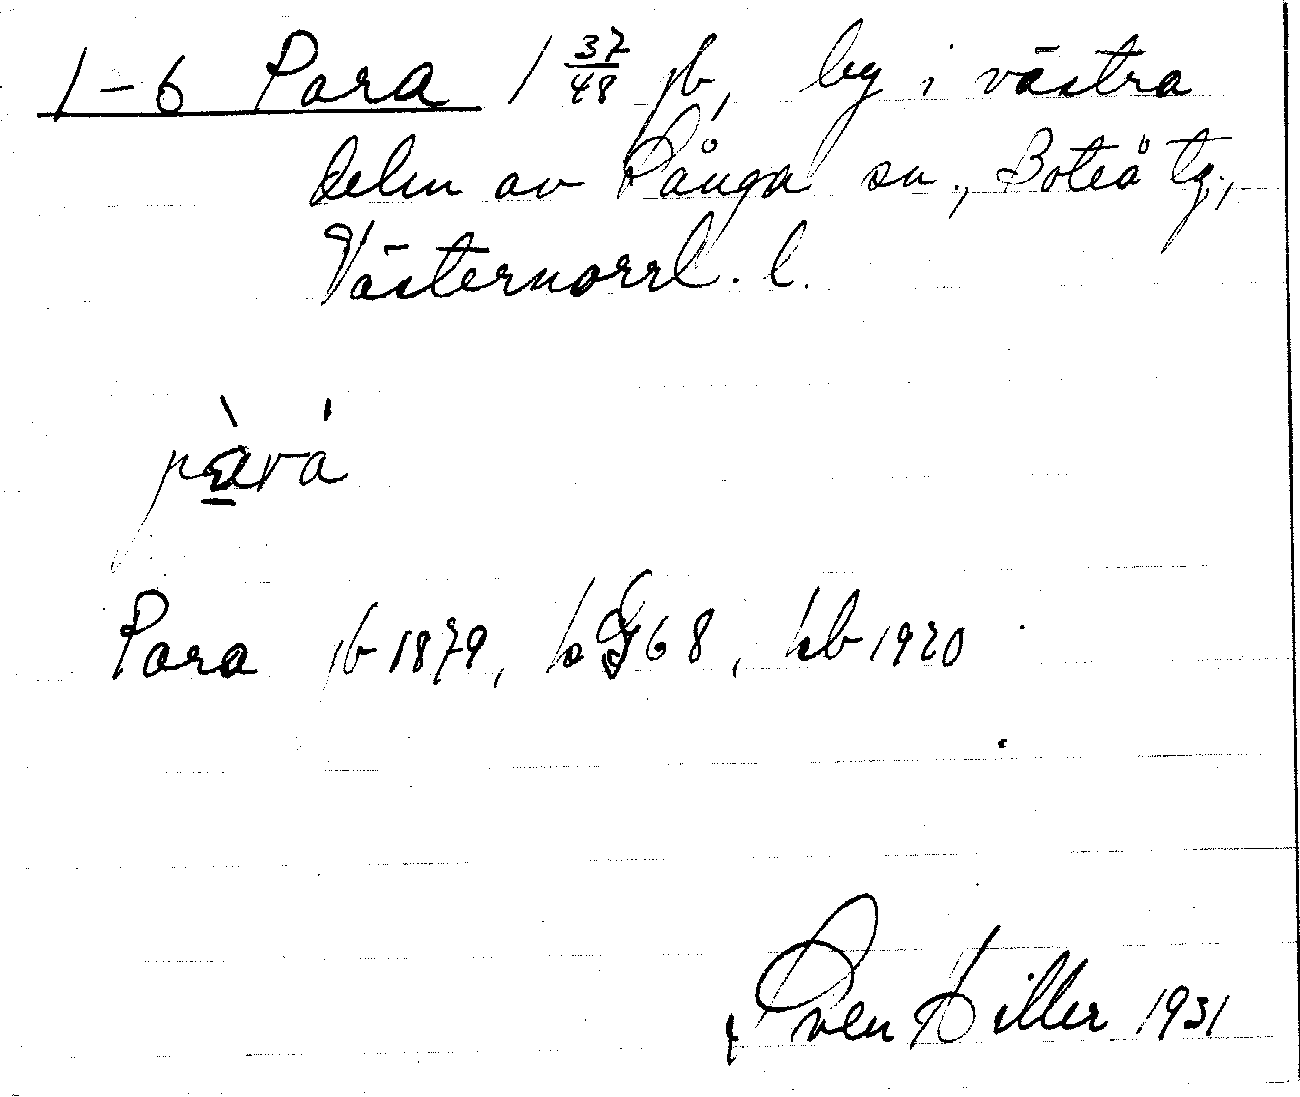 1-6 Para 1 37/48 jb, by i västra
delen av Långa sn., Boteå tg.,
Västernorrl. l.
pàrá
Para jb 1879, ks 68, kb 1920
Sven Hiller 1931